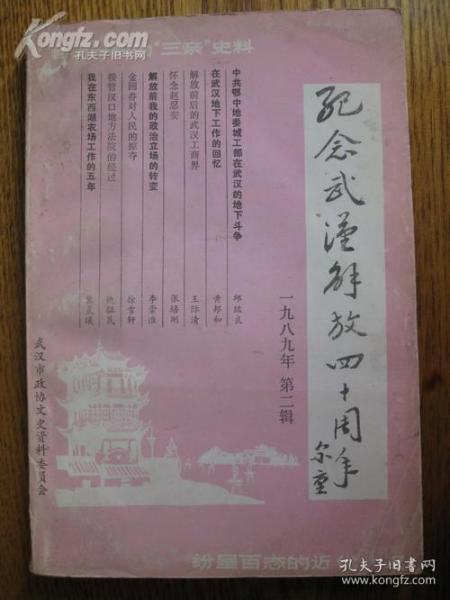 Kongfz.com
"三亲"史料
纪念武漢解放四十周年
尔重
一九八九年 第二辑
中共鄂中地委城工部在武汉的地下斗争
在武汉地下工作的回忆 黄邦和
解放前后的武汉工商界 王际清
怀念赵忍安 张培刚
解放前我的政治立场的转变 李崇淮
金圆券对人民的掠夺 徐雪轩
接管汉口地方法院的经过
我在东西湖农场工作的五年
武汉市政协文史资料委员会
纷呈百态的近
孔夫子旧书网